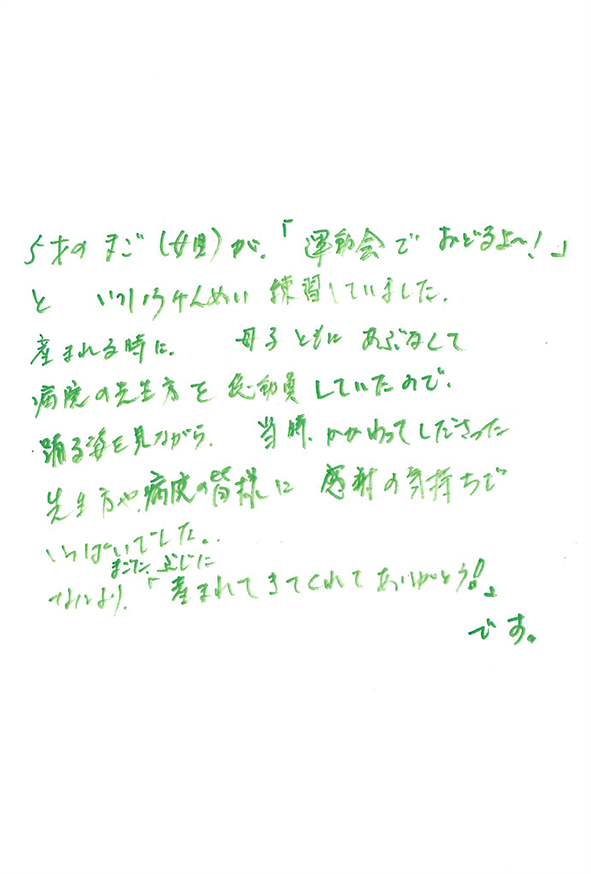 5才のまご(女児)が、「運動会でおどるよ〜!」
と いっしょうけんめい 練習していました。
産まれる時に、 母子ともにあぶなくて
病院の先生方を総動員していたので、
踊る姿を見ながら、 当時、かかわってくださった
先生方や、病院の皆様に 感謝の気持ちで
いっぱいでした。
まごに、
なにより、「産まれてきてくれてありがとう!」
です。